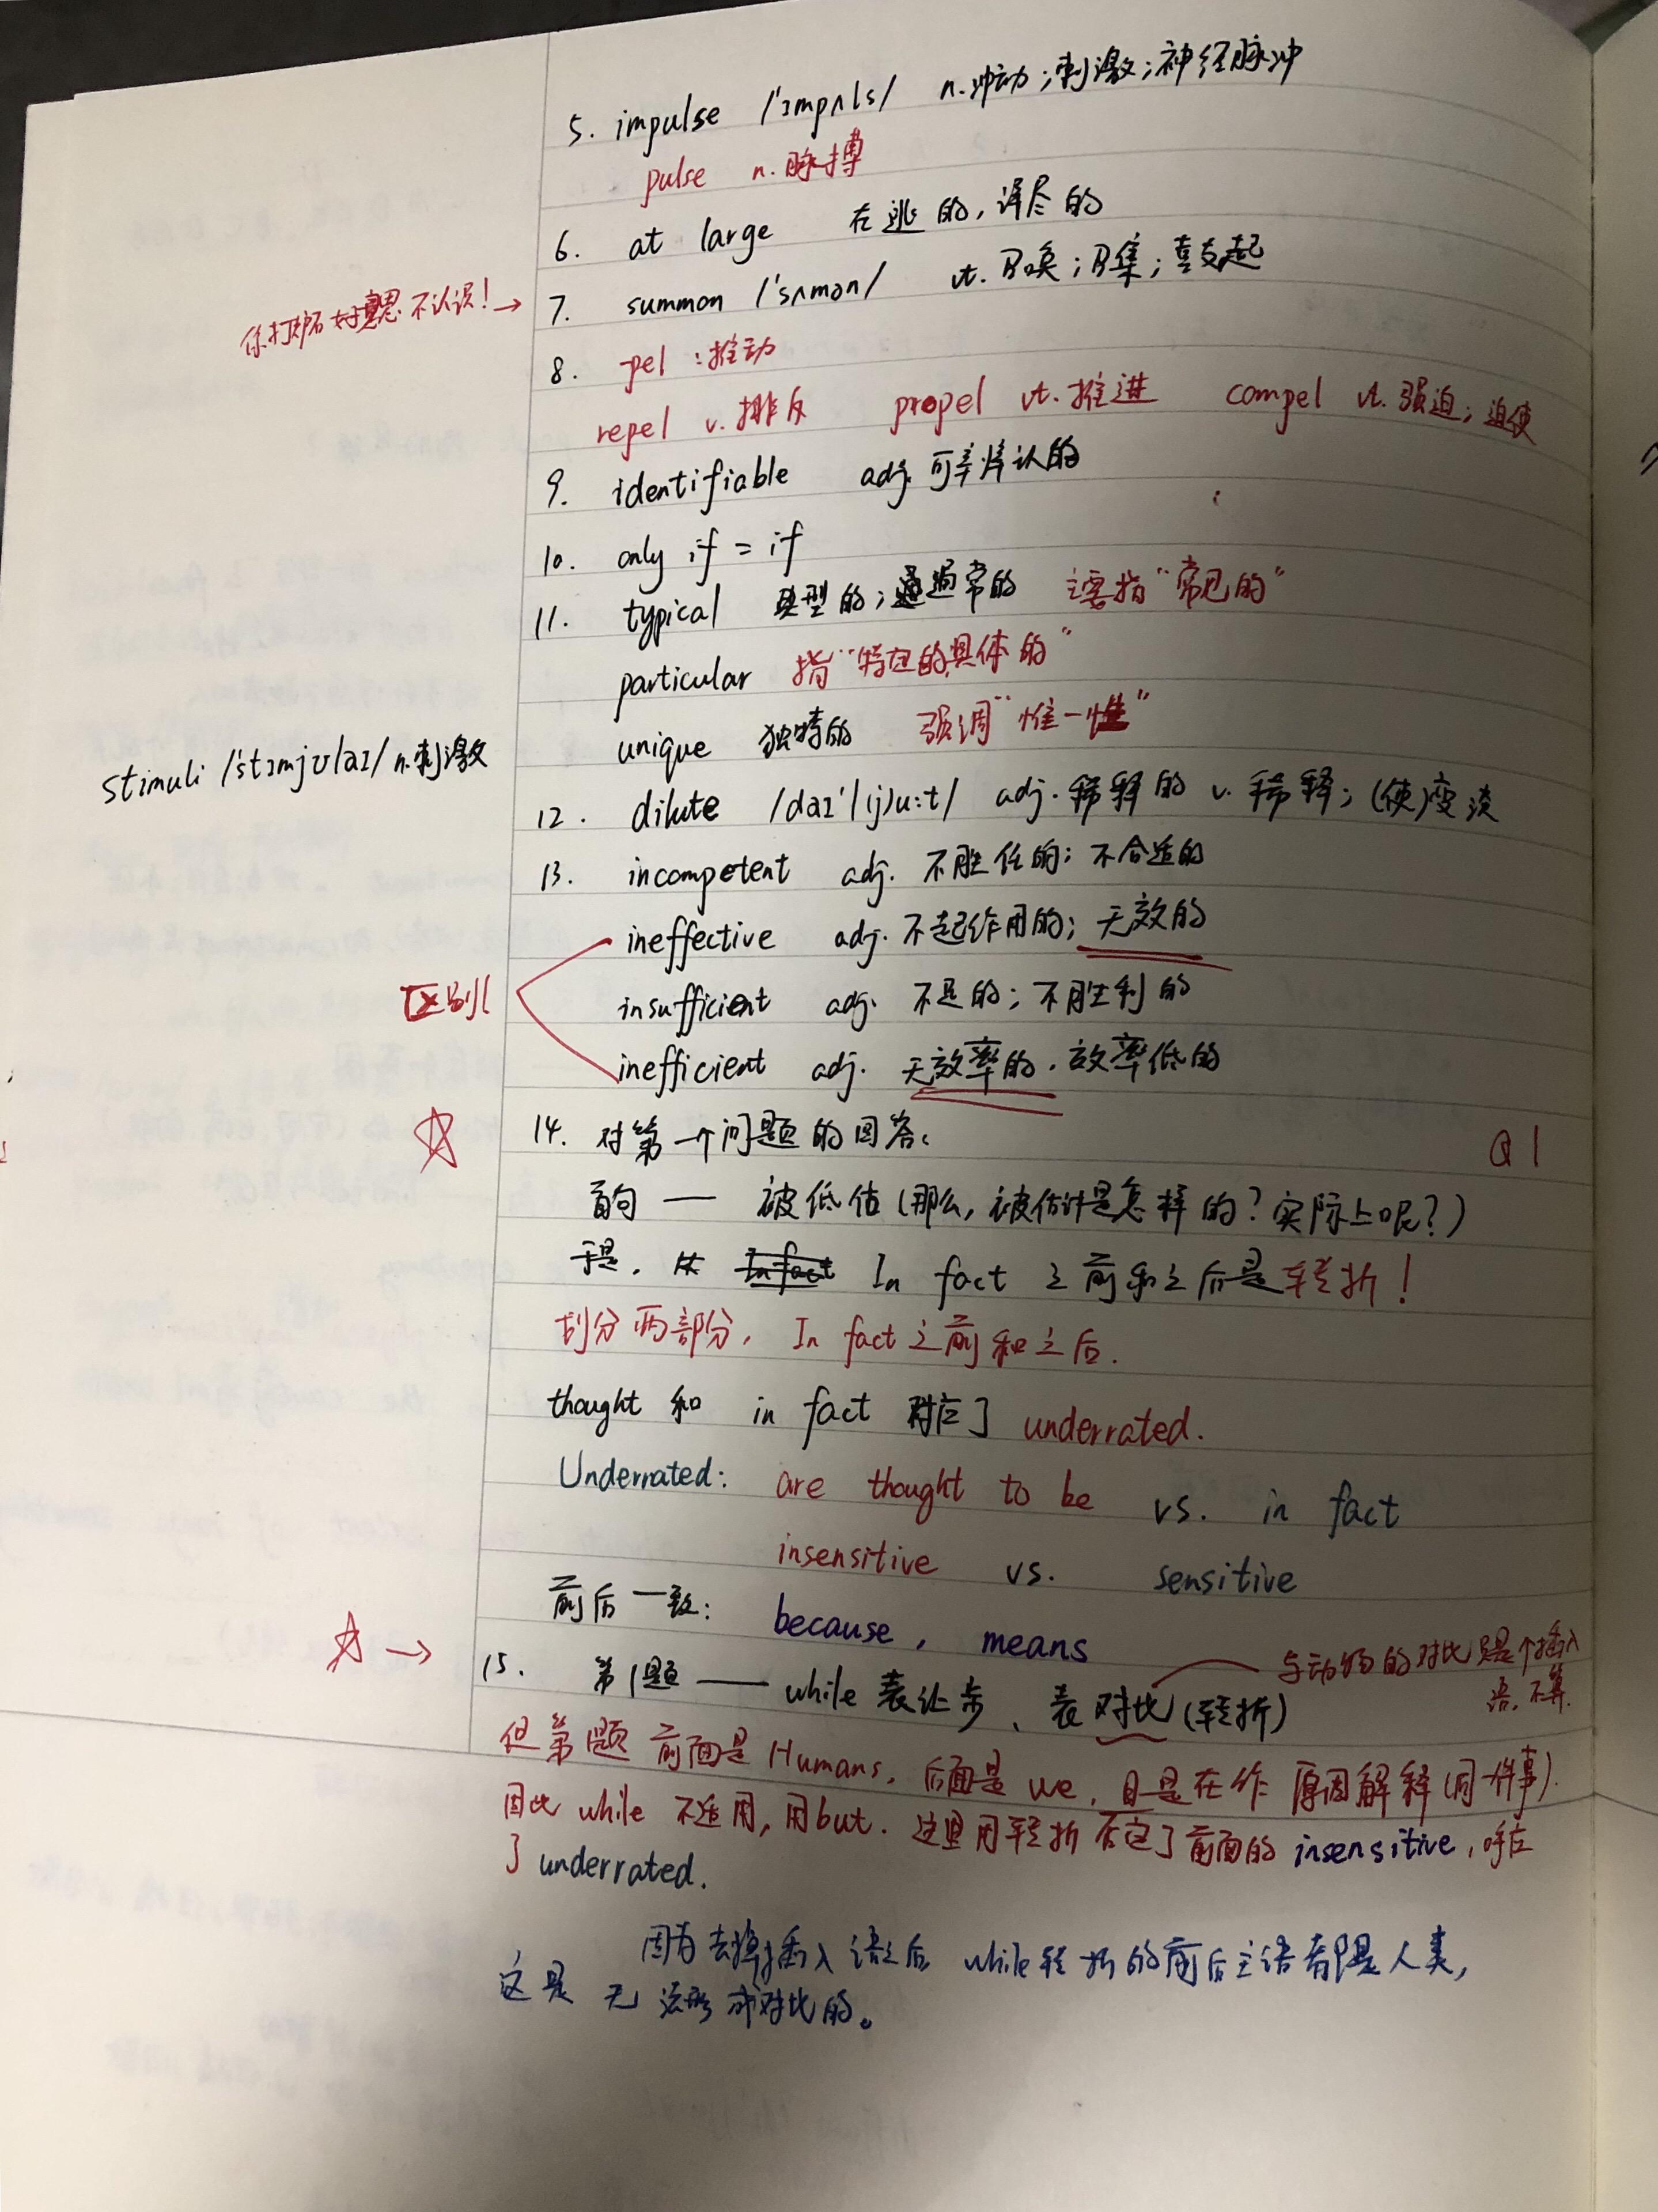 5. impulse /'ɪmpʌls/ n.冲动;刺激;神经脉冲
pulse n.脉搏
6. at large 在逃的,详尽的
你打炉石好意思不认识!→
7. summon /'sʌmən/ vt.召唤;召集;鼓起
8. -pel:推动
repel v.排斥 propel vt.推进 compel vt.强迫;迫使
9. identifiable adj.可辨认的
10. only if = if
11. typical 典型的;通常的 主要指“常见的”
particular 指“特定的,具体的”
unique 独特的 强调“惟一性”
stimuli /'stɪmjʊlaɪ/ n.刺激
12. dilute /daɪ'l(j)u:t/ adj.稀释的 v.稀释;(使)变淡
13. incompetent adj.不胜任的;不合适的
ineffective adj.不起作用的;无效的
区别
insufficient adj.不足的;不胜利的
inefficient adj.无效率的.效率低的
14. 对第一个问题的回答. Q1
首句 — 被低估(那么,被估计是怎样的?实际上呢?)
于是, In fact 之前和之后是转折!
划分两部分, In fact之前和之后.
thought 和 in fact 对应了 underrated.
Underrated: are thought to be vs. in fact
insensitive vs. sensitive
前后一致: because, means
→ 15. 第1题 —— while 表让步、表对比(转折)
与动物的对比只是个插入
语,不算.
但第1题 前面是Humans,后面是we,且是在作 原因解释(同一件事).
因此 while 不适用,用but. 这里用转折 否定了前面的insensitive,呼应
了 underrated.
因为去掉插入语之后 while转折的前后主语都是人类,
这是 无法形成对比的。